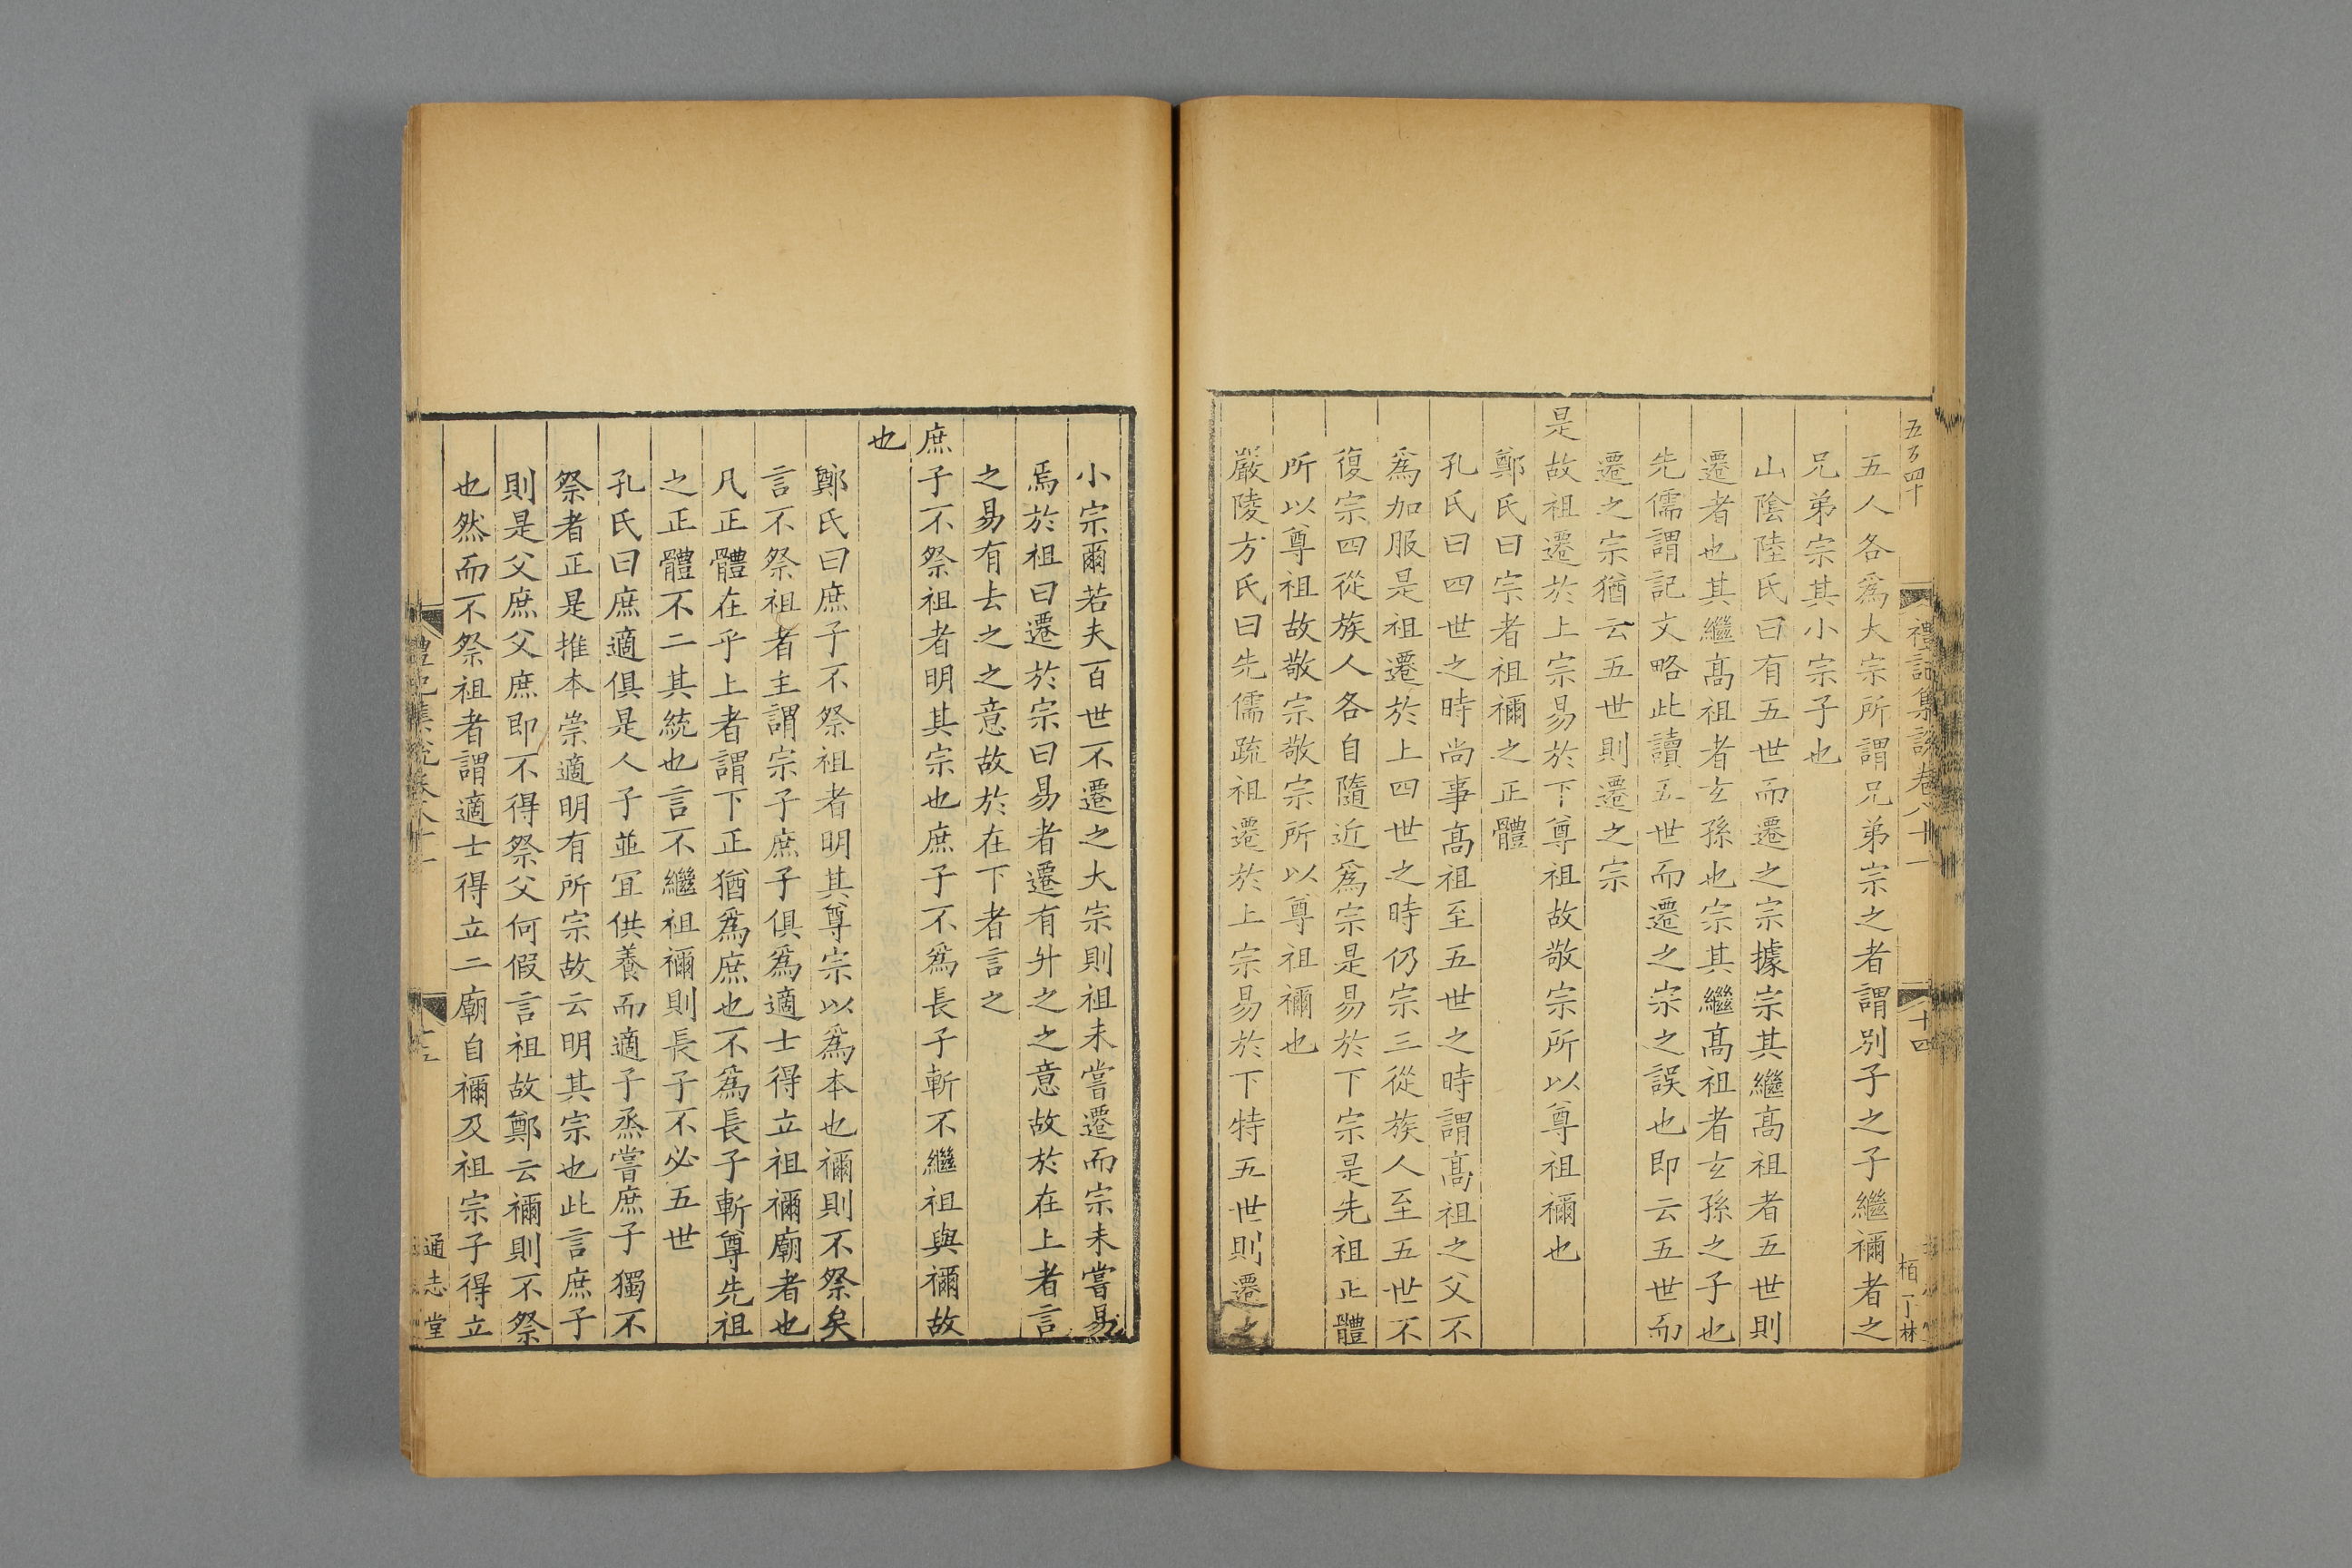 五百四十
禮記集說卷八十一
十四
栢下林
五人各爲大宗所謂兄弟宗之者謂别子之子繼禰者之
兄弟宗其小宗子也
山陰陸氏曰有五世而遷之宗據宗其繼高祖者五世則
遷者也其繼高祖者玄孫也宗其繼高祖者玄孫之子也
先儒謂記文略此讀五世而遷之宗之誤也即云五世而
遷之宗猶云五世則遷之宗
是故祖遷於上宗易於下尊祖故敬宗所以尊祖禰也
鄭氏曰宗者祖禰之正體
孔氏曰四世之時尚事高祖至五世之時謂高祖之父不
爲加服是祖遷於上四世之時仍宗三從族人至五世不
復宗四從族人各自隨近爲宗是易於下宗是先祖正體
所以尊祖故敬宗敬宗所以尊祖禰也
嚴陵方氏曰先儒疏祖遷於上宗易於下特五世則遷之
小宗爾若夫百世不遷之大宗則祖未嘗遷而宗未嘗易
焉於祖曰遷於宗曰易者遷有升之之意故於在上者言
之易有去之之意故於在下者言之
庶子不祭祖者明其宗也庶子不爲長子斬不繼祖與禰故
也
鄭氏曰庶子不祭祖者明其尊宗以爲本也禰則不祭矣
言不祭祖者主謂宗子庶子俱爲適士得立祖禰廟者也
凡正體在乎上者謂下正猶爲庶也不爲長子斬尊先祖
之正體不二其統也言不繼祖禰則長子不必五世
孔氏曰庶適俱是人子並冝供養而適子烝嘗庶子獨不
祭者正是推本崇適明有所宗故云明其宗也此言庶子
則是父庶父庶即不得祭父何假言祖故鄭云禰則不祭
也然而不祭祖者謂適士得立二廟自禰及祖宗子得立
通志堂